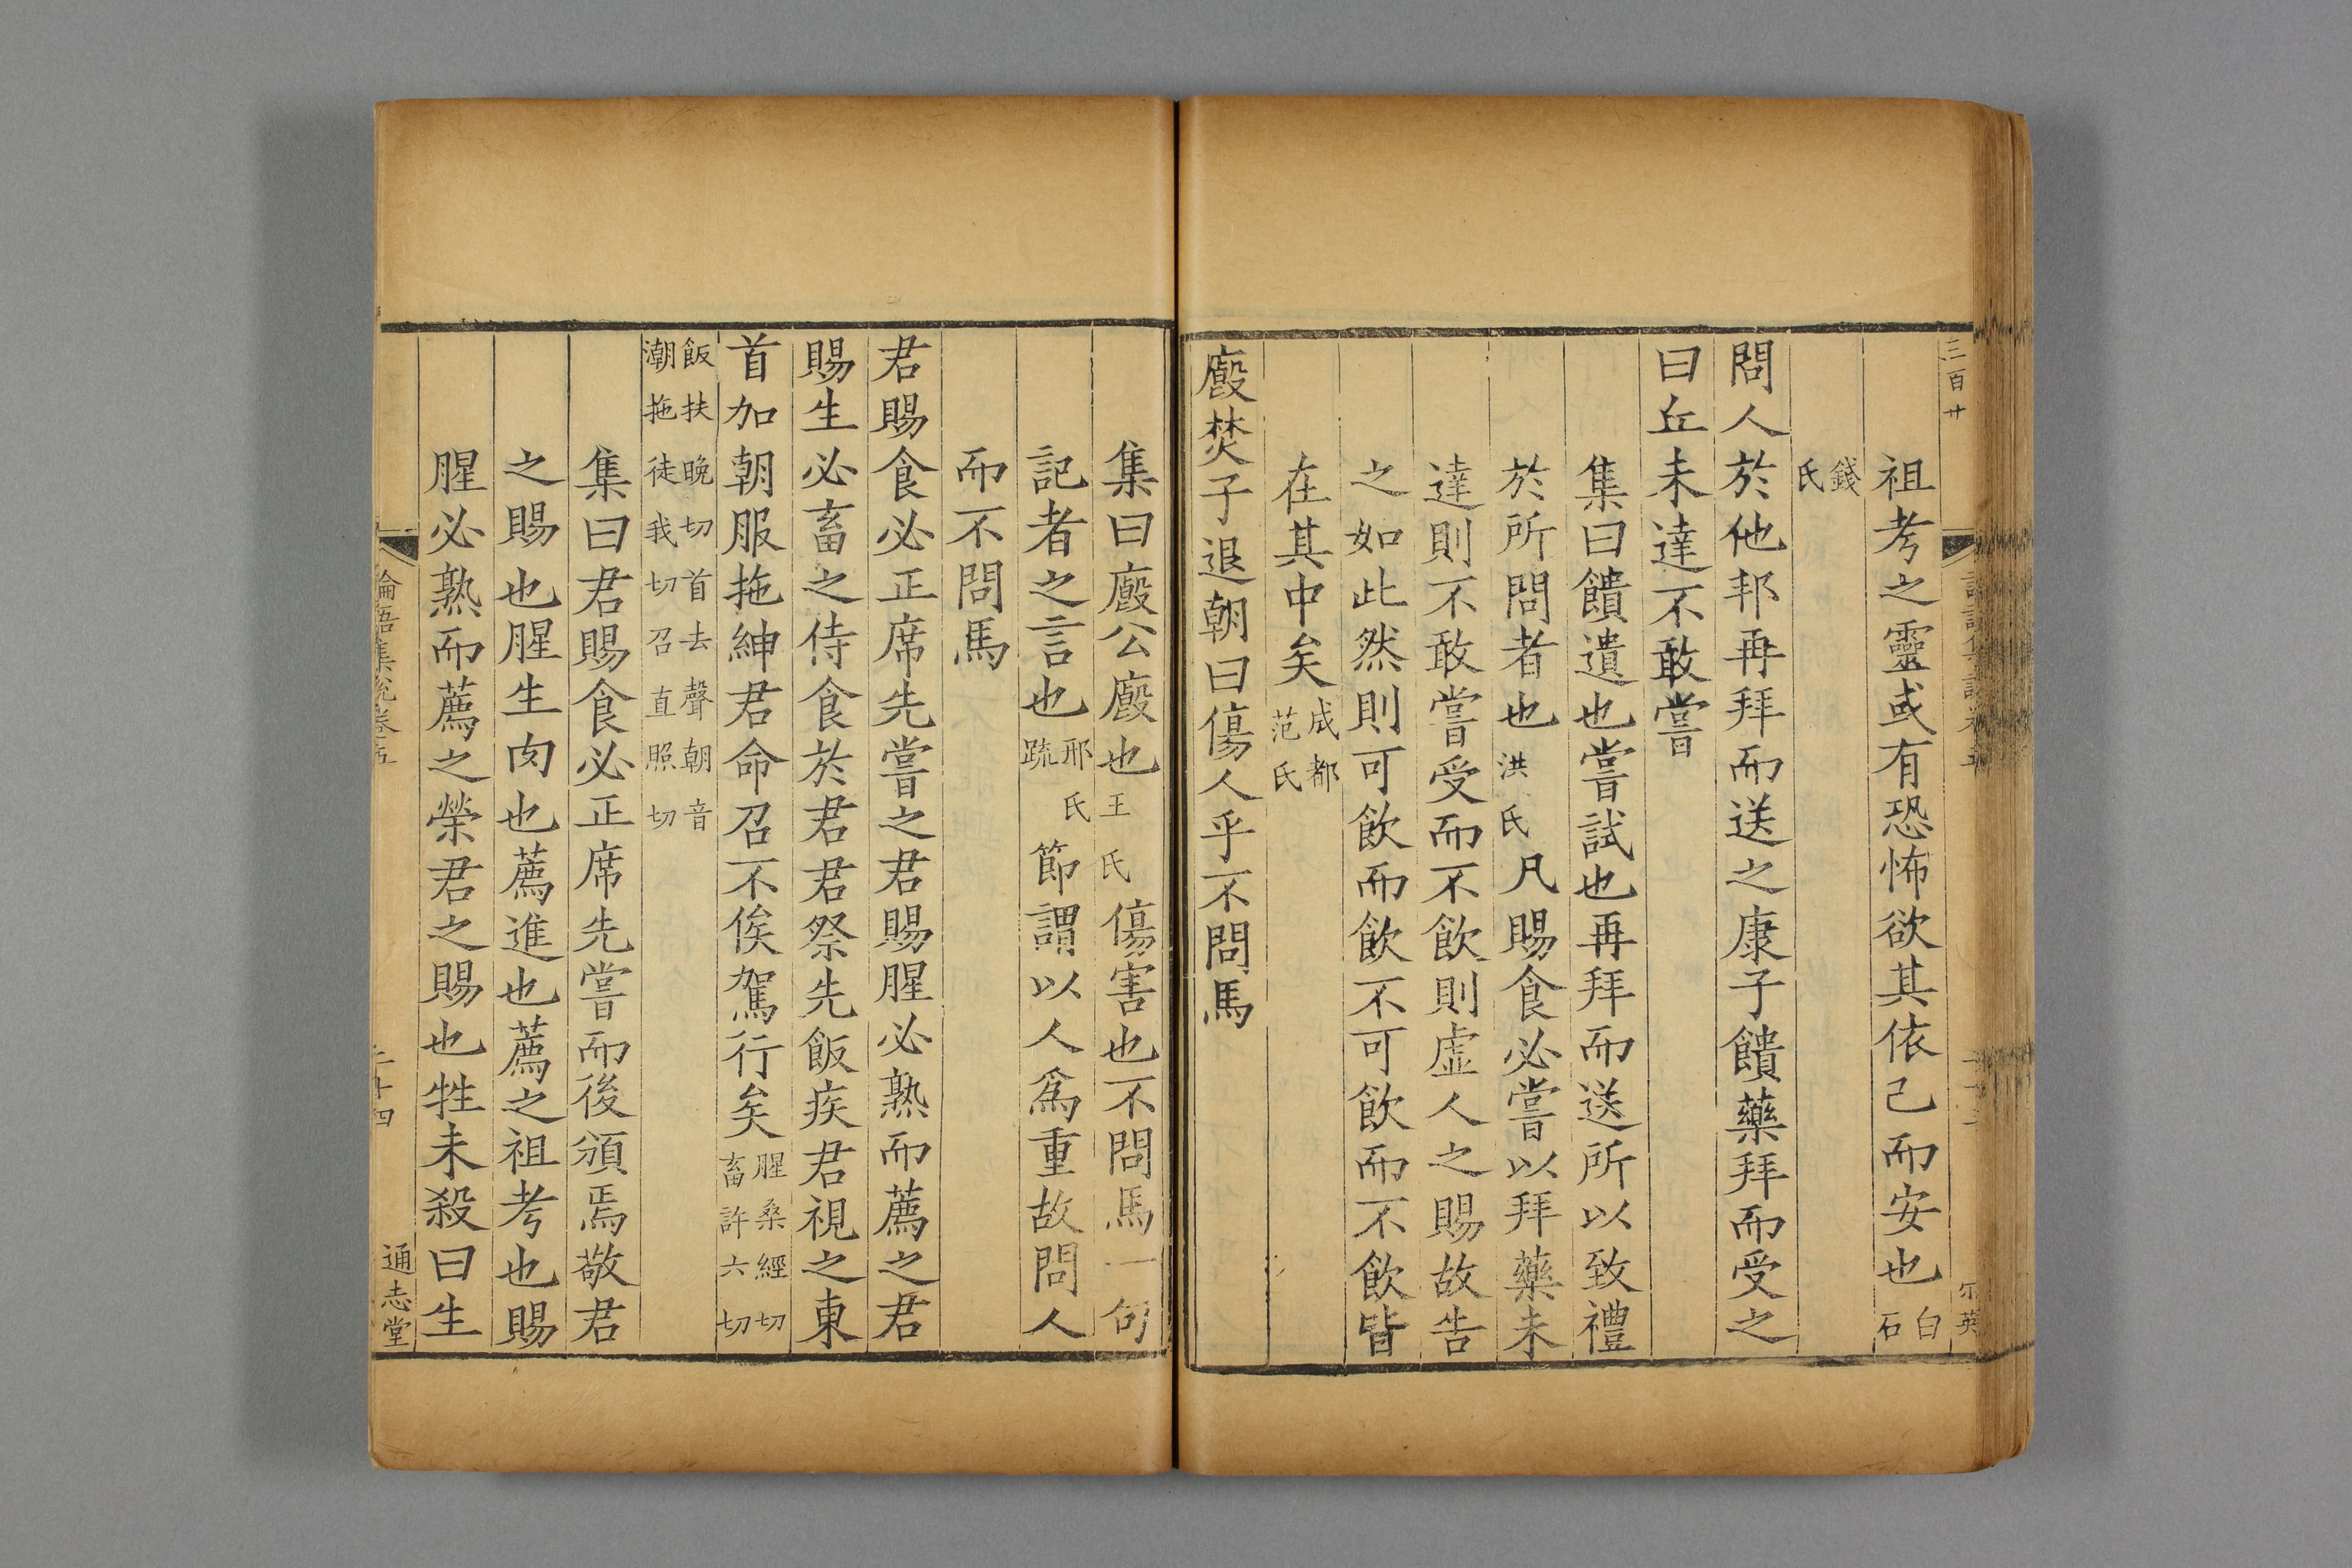 三百廿
祖考之靈或有恐怖欲其依己而安也白石
錢氏
問人於他邦再拜而送之康子饋藥拜而受之
曰丘未達不敢嘗
集曰饋遺也嘗試也再拜而送所以致禮
於所問者也洪氏凡賜食必嘗以拜藥未
達則不敢嘗受而不飲則虛人之賜故告
之如此然則可飲而飲不可飲而不飲皆
在其中矣成都范氏
廄焚子退朝曰傷人乎不問馬
集曰廄公廄也王氏傷害也不問馬一句
記者之言也邢氏疏節謂以人爲重故問人
而不問馬
君賜食必正席先嘗之君賜腥必熟而薦之君
賜生必畜之侍食於君君祭先飯疾君視之東
首加朝服拖紳君命召不俟駕行矣腥桑經切畜許六切
飯扶晚切首去聲朝音潮拖徒我切召直照切
集曰君賜食必正席先嘗而後頒焉敬君
之賜也腥生肉也薦進也薦之祖考也賜
腥必熟而薦之榮君之賜也牲未殺曰生
論語集說卷五
二十四
通志堂